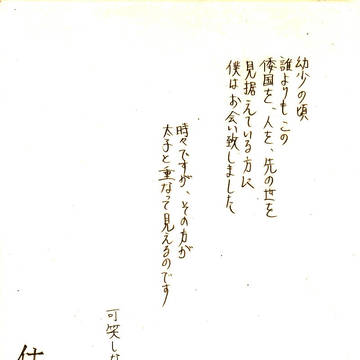 幼少の頃
誰よりもこの
倭国を、人を、先の世を
見据えている方に
僕はお会い致しました
時々ですが、その方が
太子と重なって見えるのです
可笑しな
仕